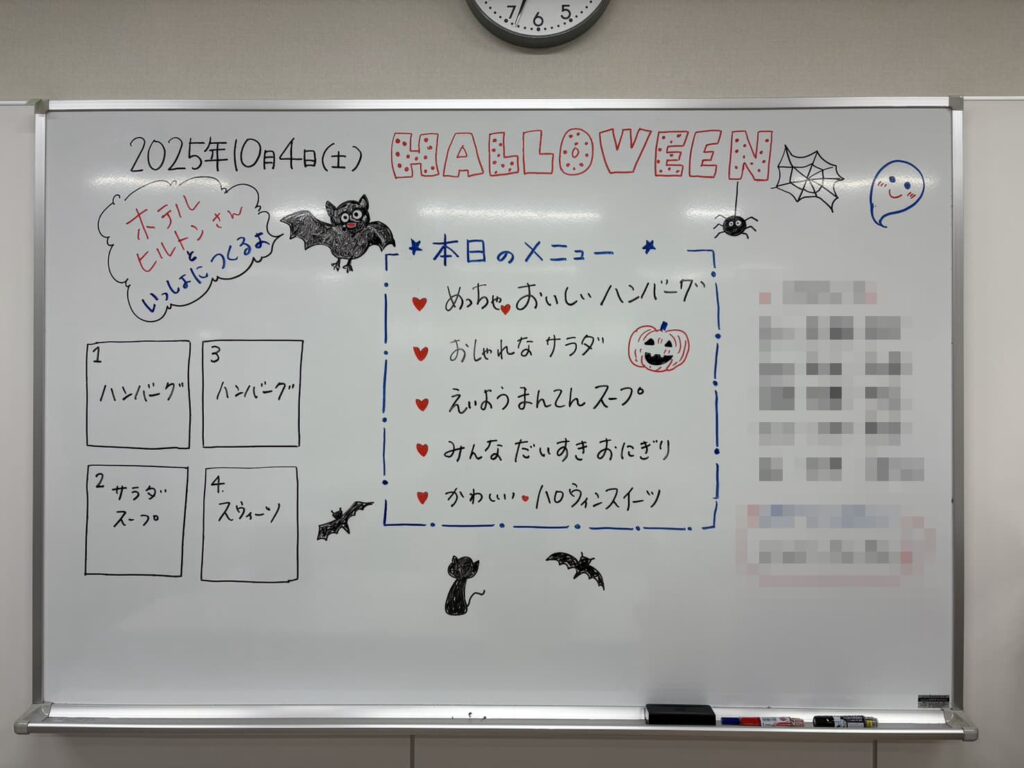 2025年10月4日(土)
HALLOWEEN
ホテル
ヒルトンさん
と
いっしょにつくるよ
本日のメニュー
めっちゃおいしいハンバーグ
おしゃれなサラダ
えいようまんてんスープ
みんなだいすきおにぎり
かわいいハロウィンスイーツ
1
ハンバーグ
3
ハンバーグ
2 サラダ
スープ
4.
スウィーツ
7 6 5